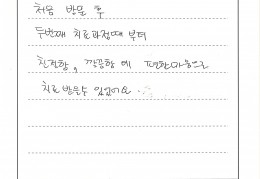 처음 방문 후
두번째 치료과정때 부터
친절함, 깔끔함 에 편한마음으로
치료 받을수 있었어요